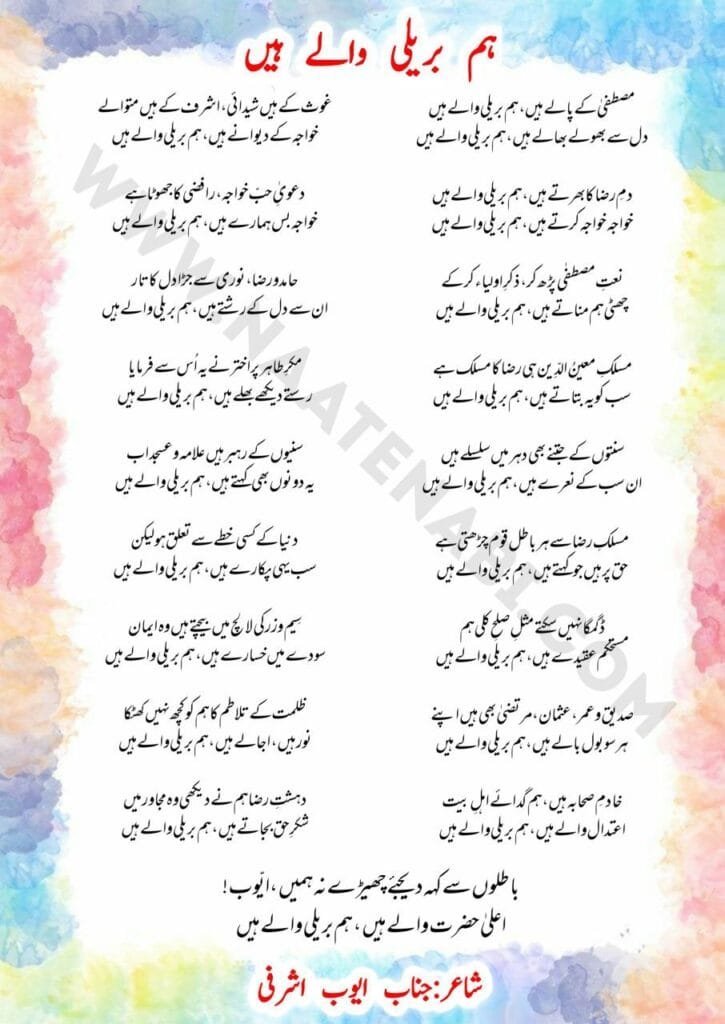 ہم بریلی والے ہیں
مصطفیٰ کے پالے ہیں، ہم بریلی والے ہیں
دل سے بھولے بھالے ہیں، ہم بریلی والے ہیں
غوث کے ہیں شیدائی، اشرف کے ہیں متوالے
خواجہ کے دیوانے ہیں، ہم بریلی والے ہیں
دمِ رضا کا بھرتے ہیں، ہم بریلی والے ہیں
خواجہ خواجہ کرتے ہیں، ہم بریلی والے ہیں
دعویٰ حبّ خواجہ، رافضی کا جھوٹا ہے
خواجہ بس ہمارے ہیں، ہم بریلی والے ہیں
نعتِ مصطفٰی پڑھ کر، ذکرِ اولیاء کر کے
چھٹی ہم مناتے ہیں، ہم بریلی والے ہیں
حامد و رضا، نوری سے جڑا دل کا تار
ان سے دل کے رشتے ہیں، ہم بریلی والے ہیں
مسلکِ معینُ الدّین ہی رضا کا مسلک ہے
سب کو یہ بتاتے ہیں، ہم بریلی والے ہیں
مکرِ طاہر پر اختر نے یہ اُس سے فرمایا
رستے دیکھے بھلے ہیں، ہم بریلی والے ہیں
سنتوں کے جتنے بھی دہر میں سلسلے ہیں
ان سب کے نعرے ہیں، ہم بریلی والے ہیں
سنیوں کے رہبر ہیں علامہ و عسجد اب
یہ دونوں بھی کہتے ہیں، ہم بریلی والے ہیں
مسلکِ رضا سے ہر باطل قوم چڑھتی ہے
حق پر ہیں جو کہتے ہیں، ہم بریلی والے ہیں
دنیا کے کسی خطے سے تعلق ہو لیکن
سب یہی پکارے ہیں، ہم بریلی والے ہیں
ڈگمگا نہیں سکتے مثلِ صلح کلی ہم
مستحکم عقیدے ہیں، ہم بریلی والے ہیں
سیم و زر کی لالچ میں بیچتے ہیں وہ ایمان
سودے میں خسارے ہیں، ہم بریلی والے ہیں
صدیق و عمر، عثمان، مرتضیٰ بھی ہیں اپنے
ہر سو بول بالے ہیں، ہم بریلی والے ہیں
ظلمت کے تلاطم کا ہم کو کچھ نہیں کھٹکا
نور ہیں، اجالے ہیں، ہم بریلی والے ہیں
خادمِ صحابہ ہیں، ہم گدائے اہلِ بیت
اعتدال والے ہیں، ہم بریلی والے ہیں
دہشتِ رضا ہم نے دیکھی وہ مجاور میں
شکرِ حق بجاتے ہیں، ہم بریلی والے ہیں
باطلوں سے کہہ دیجئے چھیڑے نہ ہمیں، ایّوب!
اعلیٰ حضرت والے ہیں، ہم بریلی والے ہیں
شاعر: جناب ایوب اشرفی
WWW.NAATENABI.COM